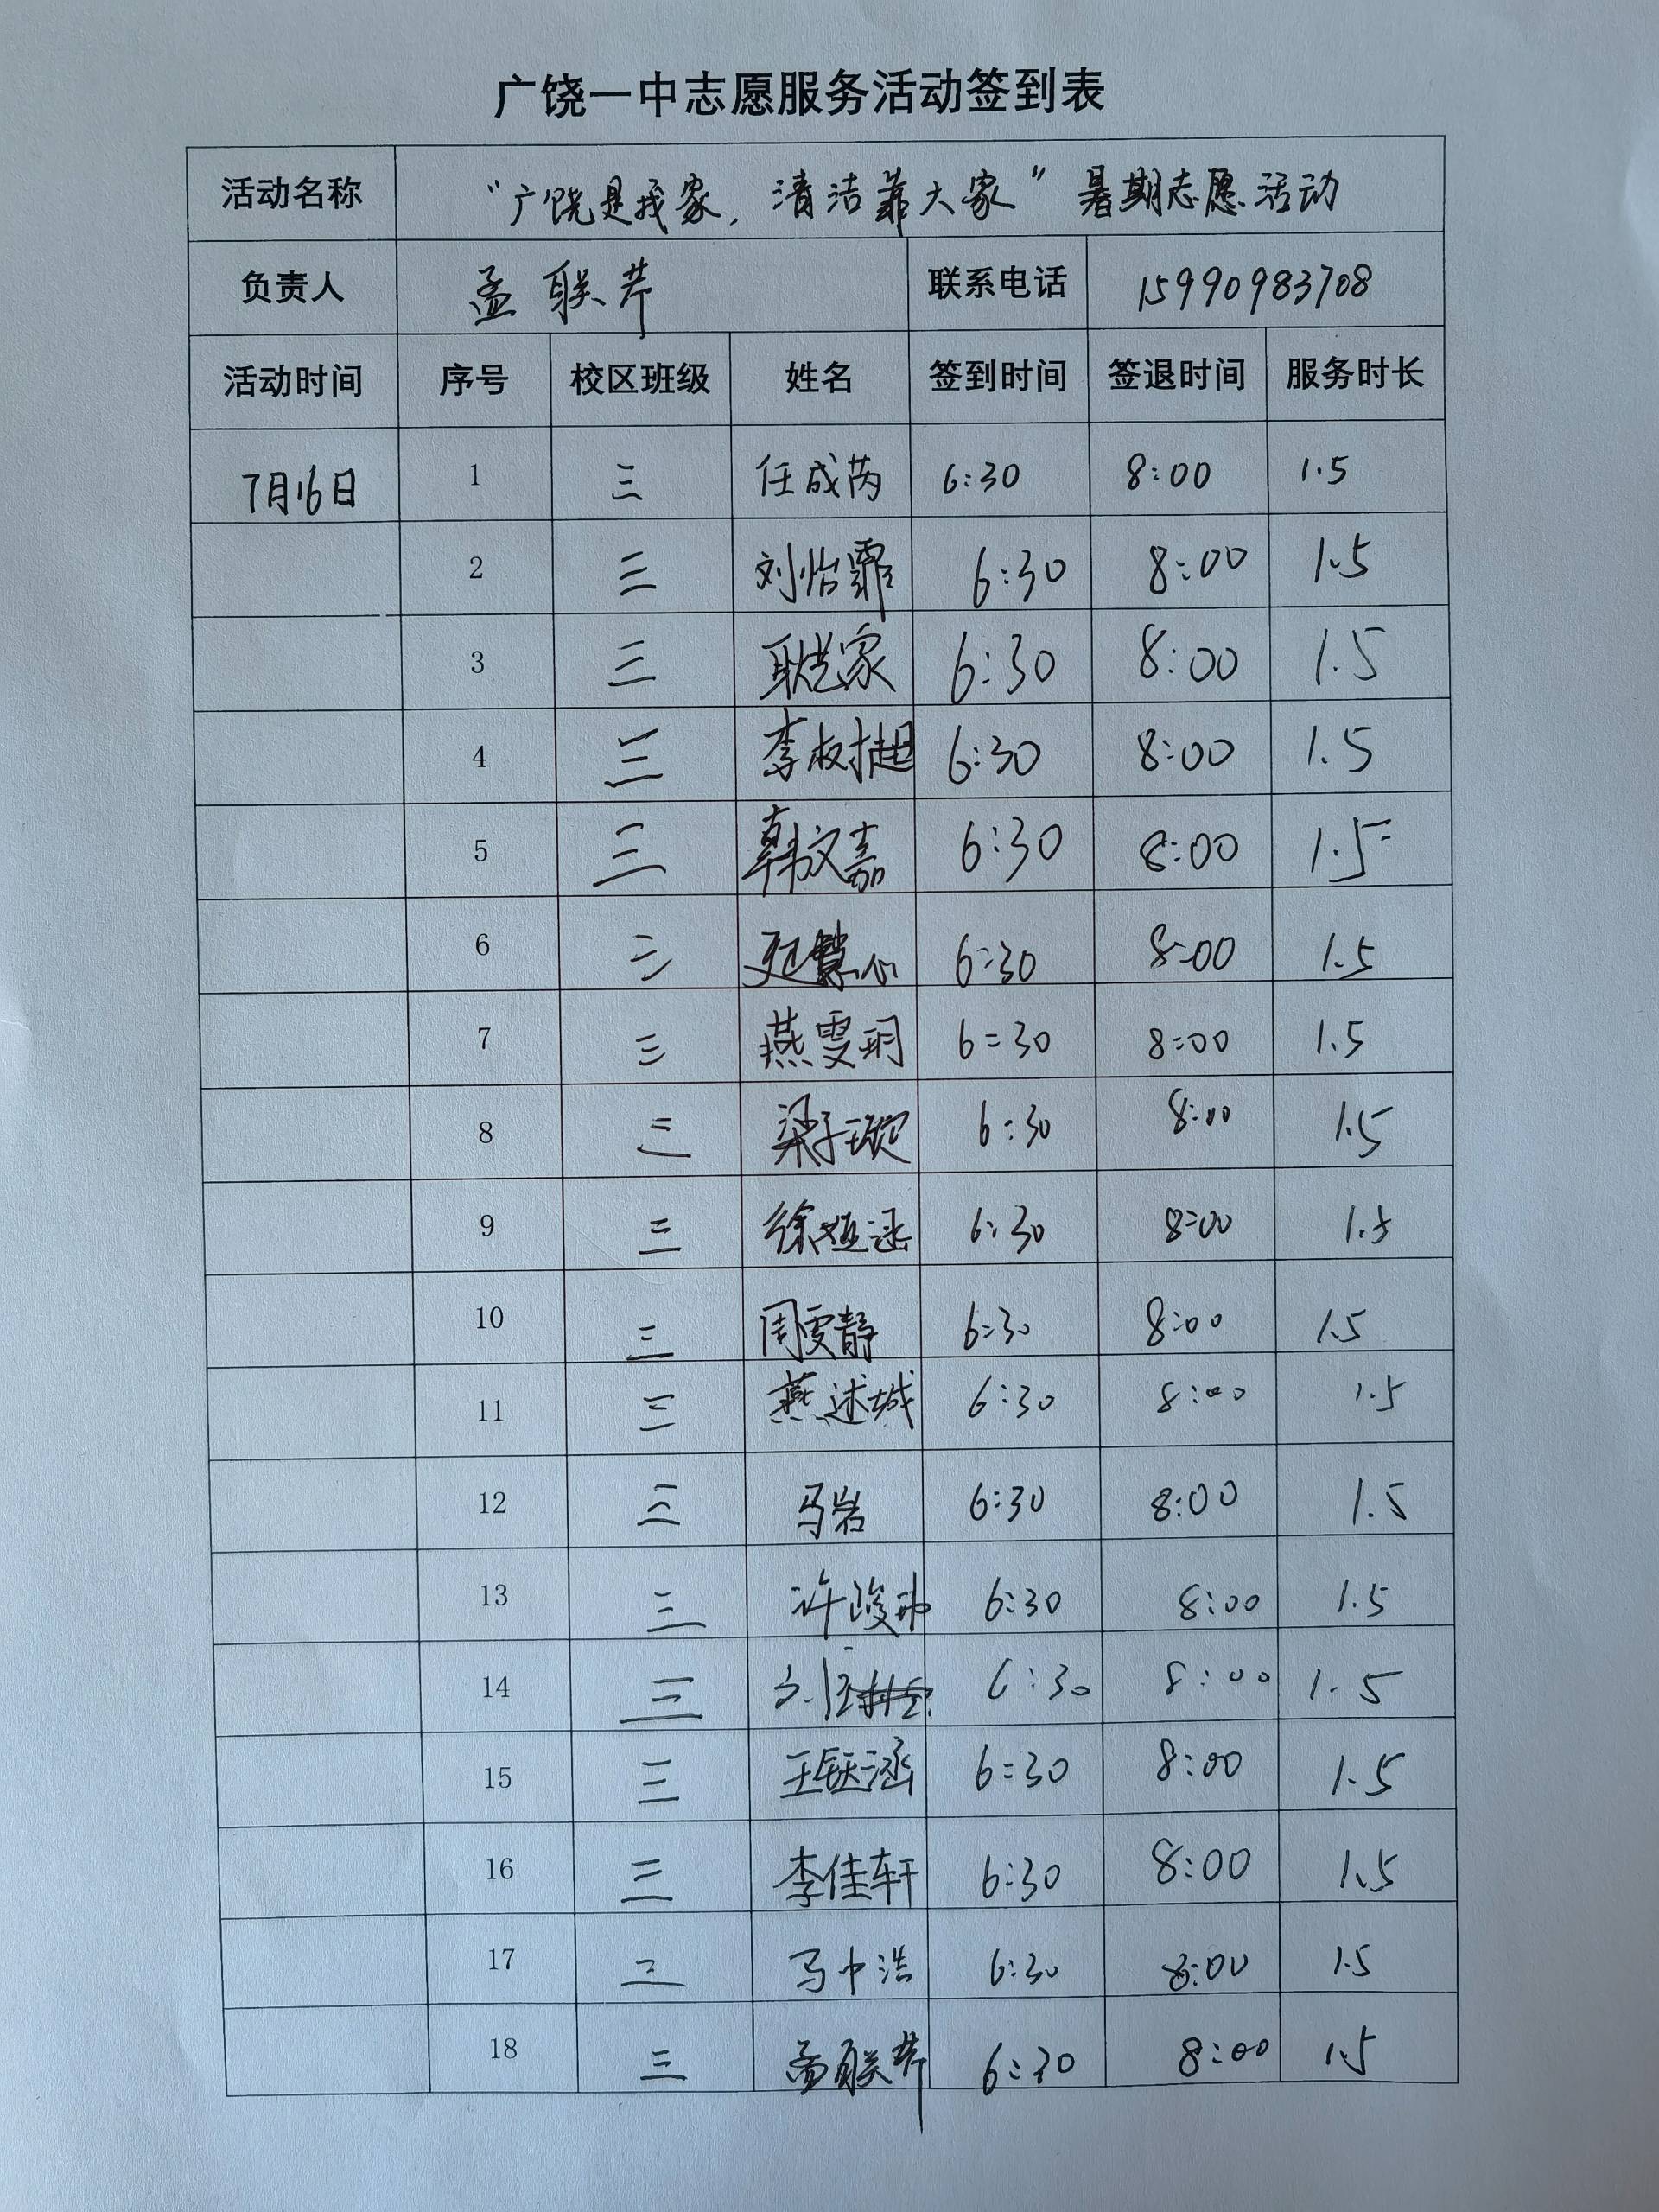 广饶一中志愿服务活动签到表
活动名称 “广饶是我家，清洁靠大家”暑期志愿活动
负责人 孟联芹 联系电话 15990983708
活动时间 序号 校区班级 姓名 签到时间 签退时间 服务时长
7月16日 1 三 任成芮 6:30 8:00 1.5
2 三 刘怡霏 6:30 8:00 1.5
3 三 耿艺家 6:30 8:00 1.5
4 三 李 6:30 8:00 1.5
5 三 韩文嘉 6:30 8:00 1.5
6 三 延慧心 6:30 8:00 1.5
7 三 燕雯玥 6:30 8:00 1.5
8 三 梁子璇 6:30 8:00 1.5
9 三 徐 涵 6:30 8:00 1.5
10 三 周雯静 6:30 8:00 1.5
11 三 燕述城 6:30 8:00 1.5
12 三 马岩 6:30 8:00 1.5
13 三 许峻 6:30 8:00 1.5
14 三 6:30 8:00 1.5
15 三 王钰涵 6:30 8:00 1.5
16 三 李佳轩 6:30 8:00 1.5
17 三 马中浩 6:30 8:00 1.5
18 三 孟联芹 6:30 8:00 1.5